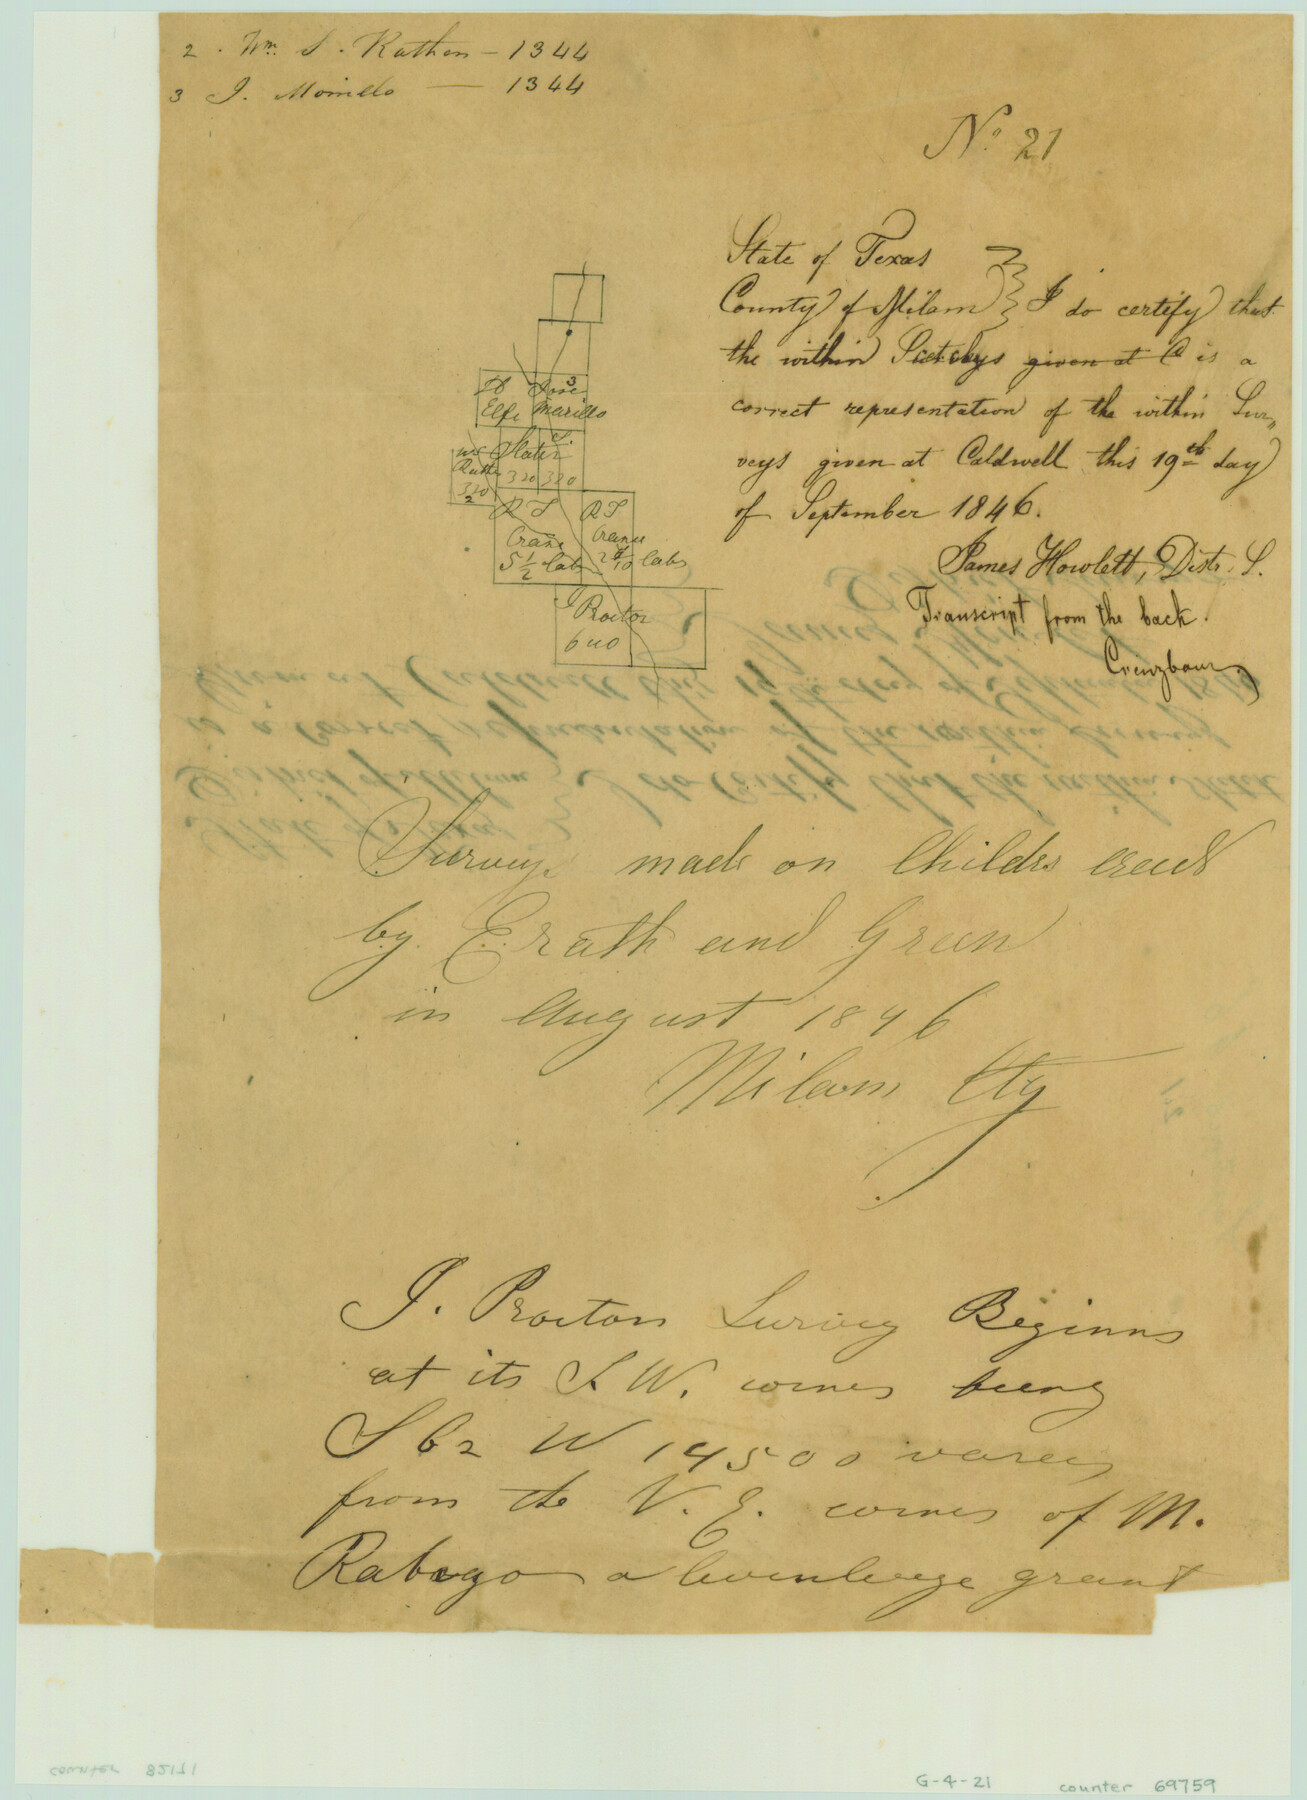 2 . Wm. S. Rathen - 1344
3 J. Morrello — 1344
No. 21
State of Texas
County of Milam } I do certify that
the within Sketchys given at C is a
correct representation of the within Sur„
veys given at Caldwell this 19th day
of September 1846.
James Howlett, Distr. S.
Transcript from the back.
Creuzbaur
3
Jose
Elfe Marillo
S.
Slater
320 320
320
2
R S
Crane
5 1/2 lab
R S
Crane
2 8/10 labs
J Proctor
640
Surveys made on Childrs creek
by Erath and Green
in August 1846
Milam Cty
J. Proctors Survey Beginns
at its S. W. corner being
S 62 W 14500 varas
from the N. E. corner of M.
Rabago a leven league grant
counter 82111
G-4-21
counter 69759